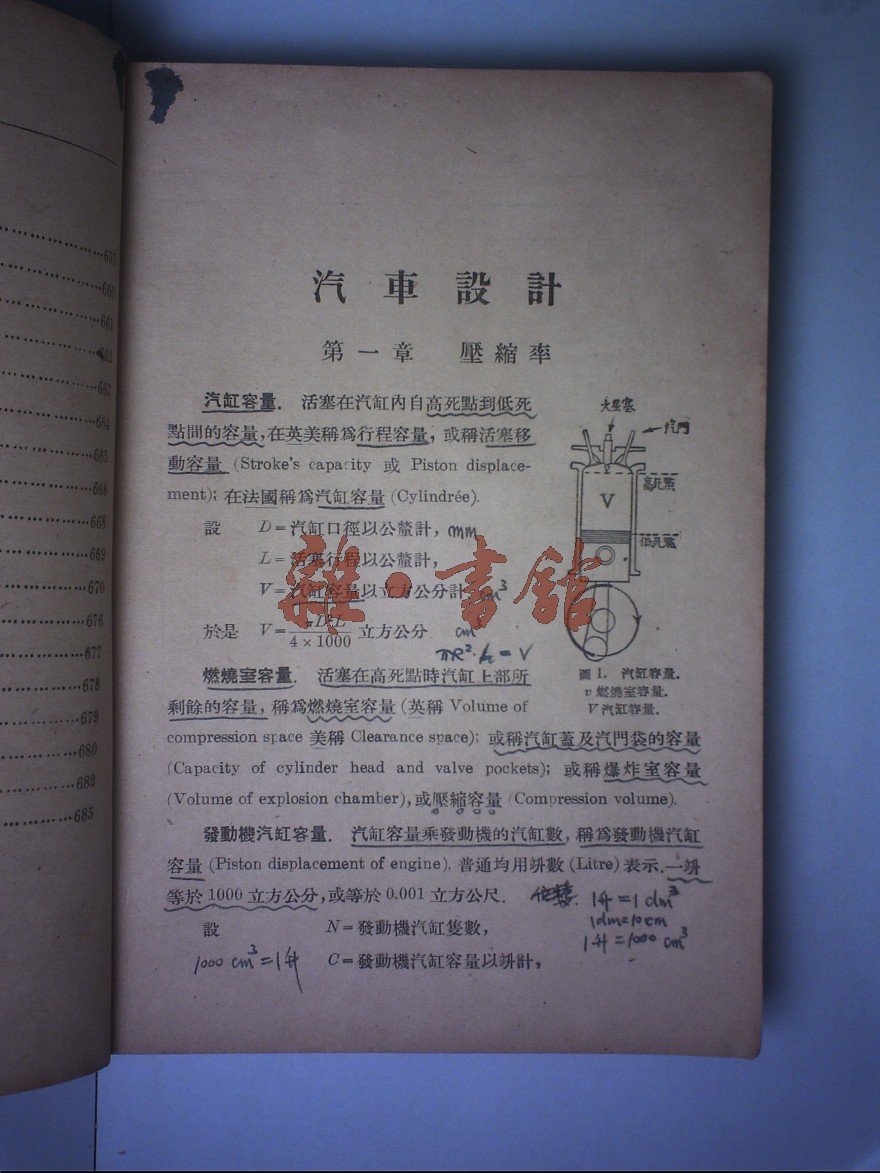 657
660
661
662
663
664
665
666
668
669
670
676
677
678
679
680
683
685
汽車設計
第一章 壓縮率
汽缸容量. 活塞在汽缸內自高死點到低死
點間的容量,在英美稱爲行程容量,或稱活塞移
動容量 (Stroke's capacity 或 Piston displace-
ment); 在法國稱爲汽缸容量 (Cylindrée).
設 D=汽缸口徑以公釐計, mm
L=活塞行程以公釐計,
V=汽缸容量以立方公分計, cm³
於是 V= πD²L / 4×1000 立方公分 cm³
πR²·h=V
火星塞
汽門
高死點
V
低死點
圖 1. 汽缸容量.
v 燃燒室容量.
V 汽缸容量.
雜·書館
燃燒室容量. 活塞在高死點時汽缸上部所
剩餘的容量,稱爲燃燒室容量 (英稱 Volume of
compression space 美稱 Clearance space); 或稱汽缸蓋及汽門袋的容量
(Capacity of cylinder head and valve pockets); 或稱爆炸室容量
(Volume of explosion chamber),或壓縮容量 (Compression volume).
發動機汽缸容量. 汽缸容量乘發動機的汽缸數,稱爲發動機汽缸
容量 (Piston displacement of engine), 普通均用竔數 (Litre) 表示.一竔
等於 1000 立方公分,或等於 0.001 立方公尺.
1升=1dm³
1dm=10cm
1升=1000 cm³
設 N=發動機汽缸隻數,
1000 cm³=1升
C=發動機汽缸容量以竔計,